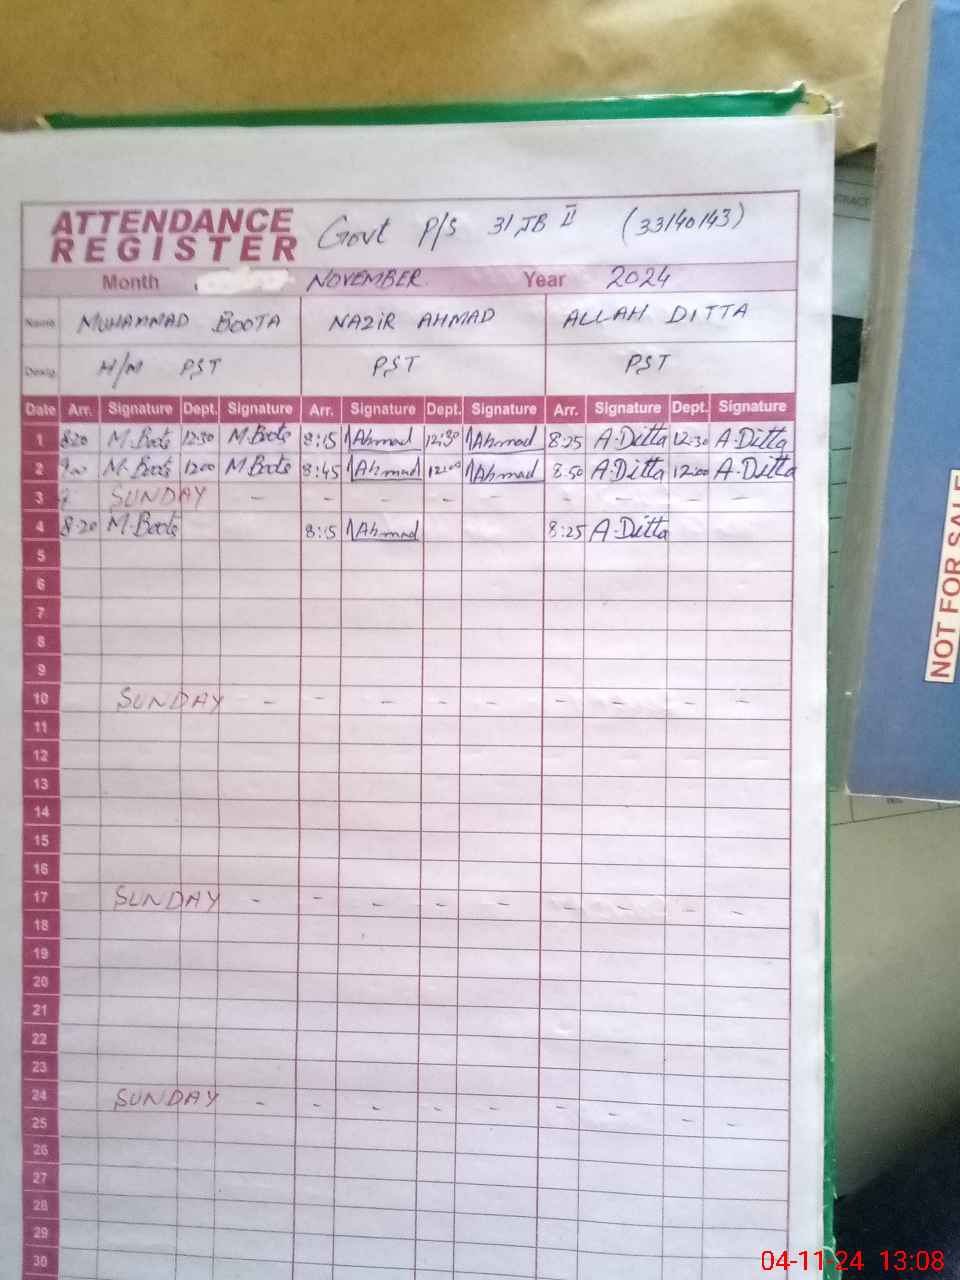 ATTENDANCE
REGISTER
Govt P/S 31 JB II (33140143)
Month NOVEMBER Year 2024
Name MUHAMMAD BOOTA NAZIR AHMAD ALLAH DITTA
Desig. H/M PST PST PST
Date Arr. Signature Dept. Signature Arr. Signature Dept. Signature Arr. Signature Dept. Signature
1 8:20 M.Boota 12:30 M.Boota 8:15 Ahmad 12:30 Ahmad 8:25 A.Ditta 12:30 A.Ditta
2 9:00 M.Boota 12:00 M.Boota 8:45 Ahmad 12:00 Ahmad 8:50 A.Ditta 12:00 A.Ditta
3 SUNDAY - - - - - - - - -
4 8:20 M.Boota 8:15 Ahmad 8:25 A.Ditta
5
6
7
8
9
10 SUNDAY - - - - - - - - -
11
12
13
14
15
16
17 SUNDAY - - - - - - - - -
18
19
20
21
22
23
24 SUNDAY - - - - - - - - -
25
26
27
28
29
30
NOT FOR SALE
04-11-24 13:08